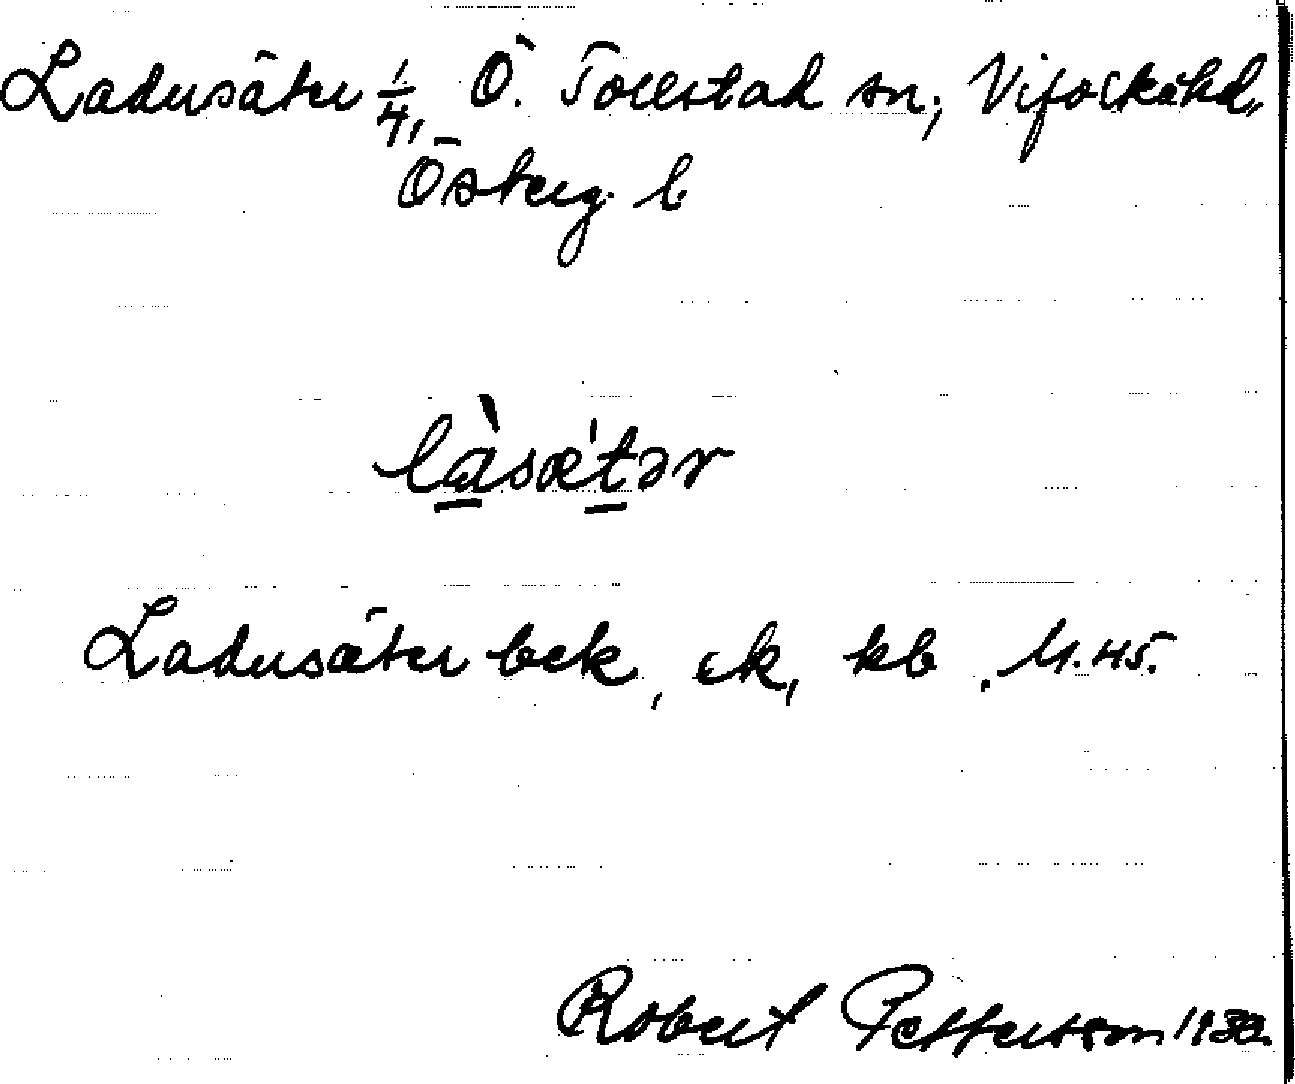 Ladusäter 1/4, Ö. Tollstad sn, Vifolkahd,
Österg. l
làsæ'tər
Ladusäter bek, ek, kb, M.45.
Robert Pettersson 1930.